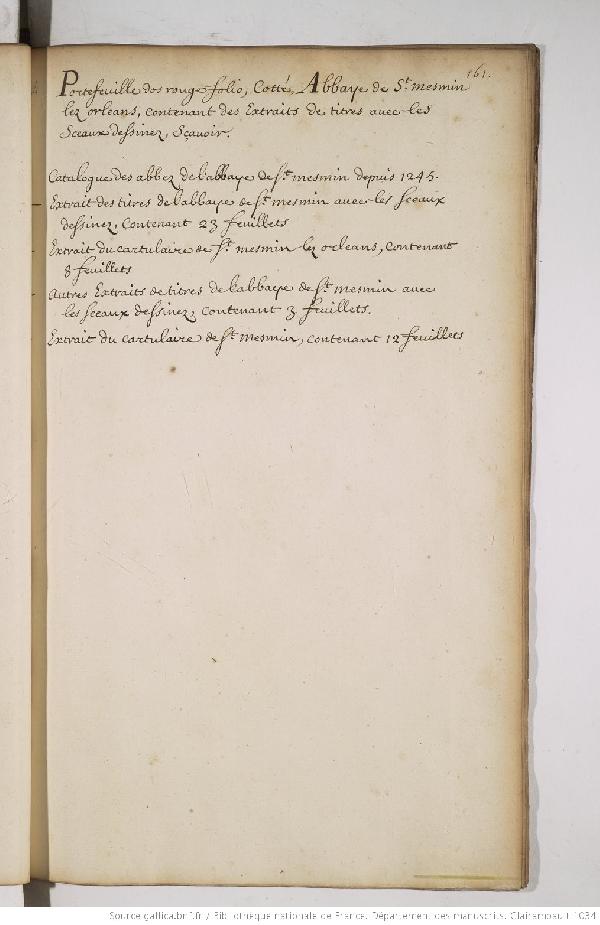 161.
Portefeuille dos rouge folio, Cotté, Abbaye de St. mesmin
lez orleans, contenant des Extraits de titres avec les
Sceaux dessinez, Sçavoir.
Catalogue des abbez de l'abbaye de St. mesmin depuis 1245.
Extrait des titres de l'abbaye de St. mesmin avec les sceaux
dessinez, Contenant 23 feuillets
Extrait du cartulaire de St. mesmin lez orleans, contenant
8 feuillets
Autres Extraits de titres de l'abbaye de St. mesmin avec
les sceaux dessinez, contenant 3 feuillets.
Extrait du cartulaire de St. Mesmin, contenant 12 feuillets
Source gallica.bnf.fr / Bibliothèque nationale de France. Département des manuscrits. Clairambault 1034